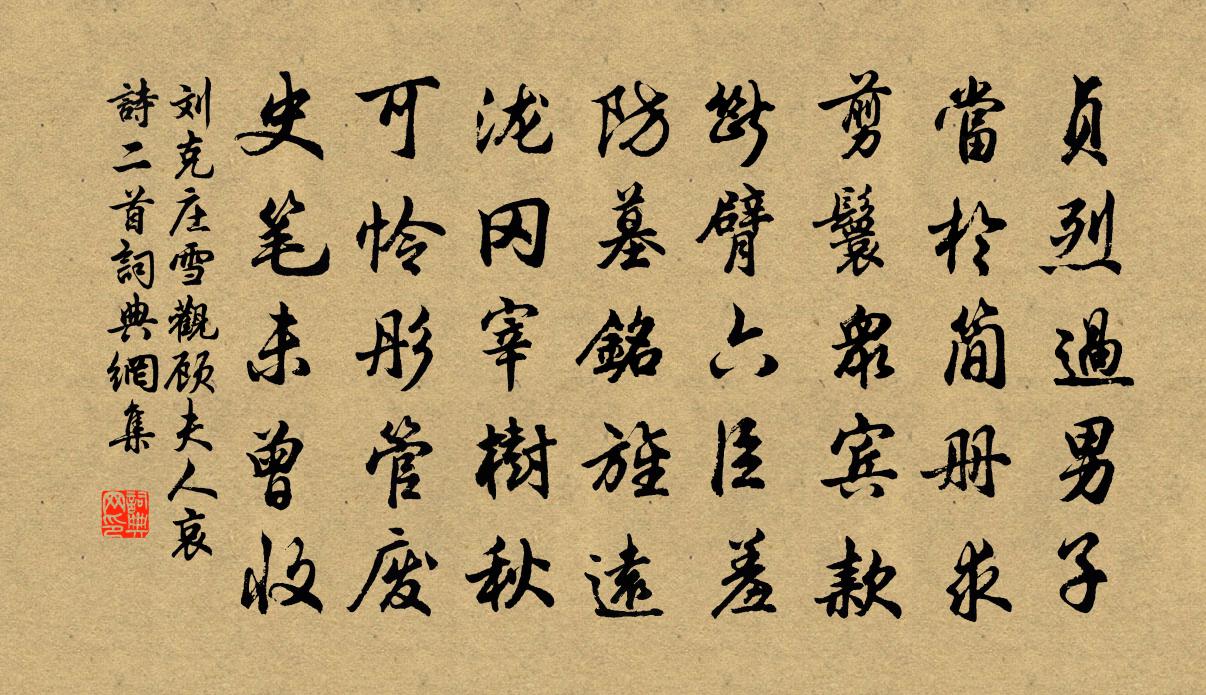 貞烈過男子
當於简册求
剪鬟眾宾款
斷臂六臣羞
防墓銘旌遠
泷冈宰樹秋
可怜彤管废
史笔未曾收
刘克庄雪觀顾夫人哀
詩二首詞典網集
詞典
网印